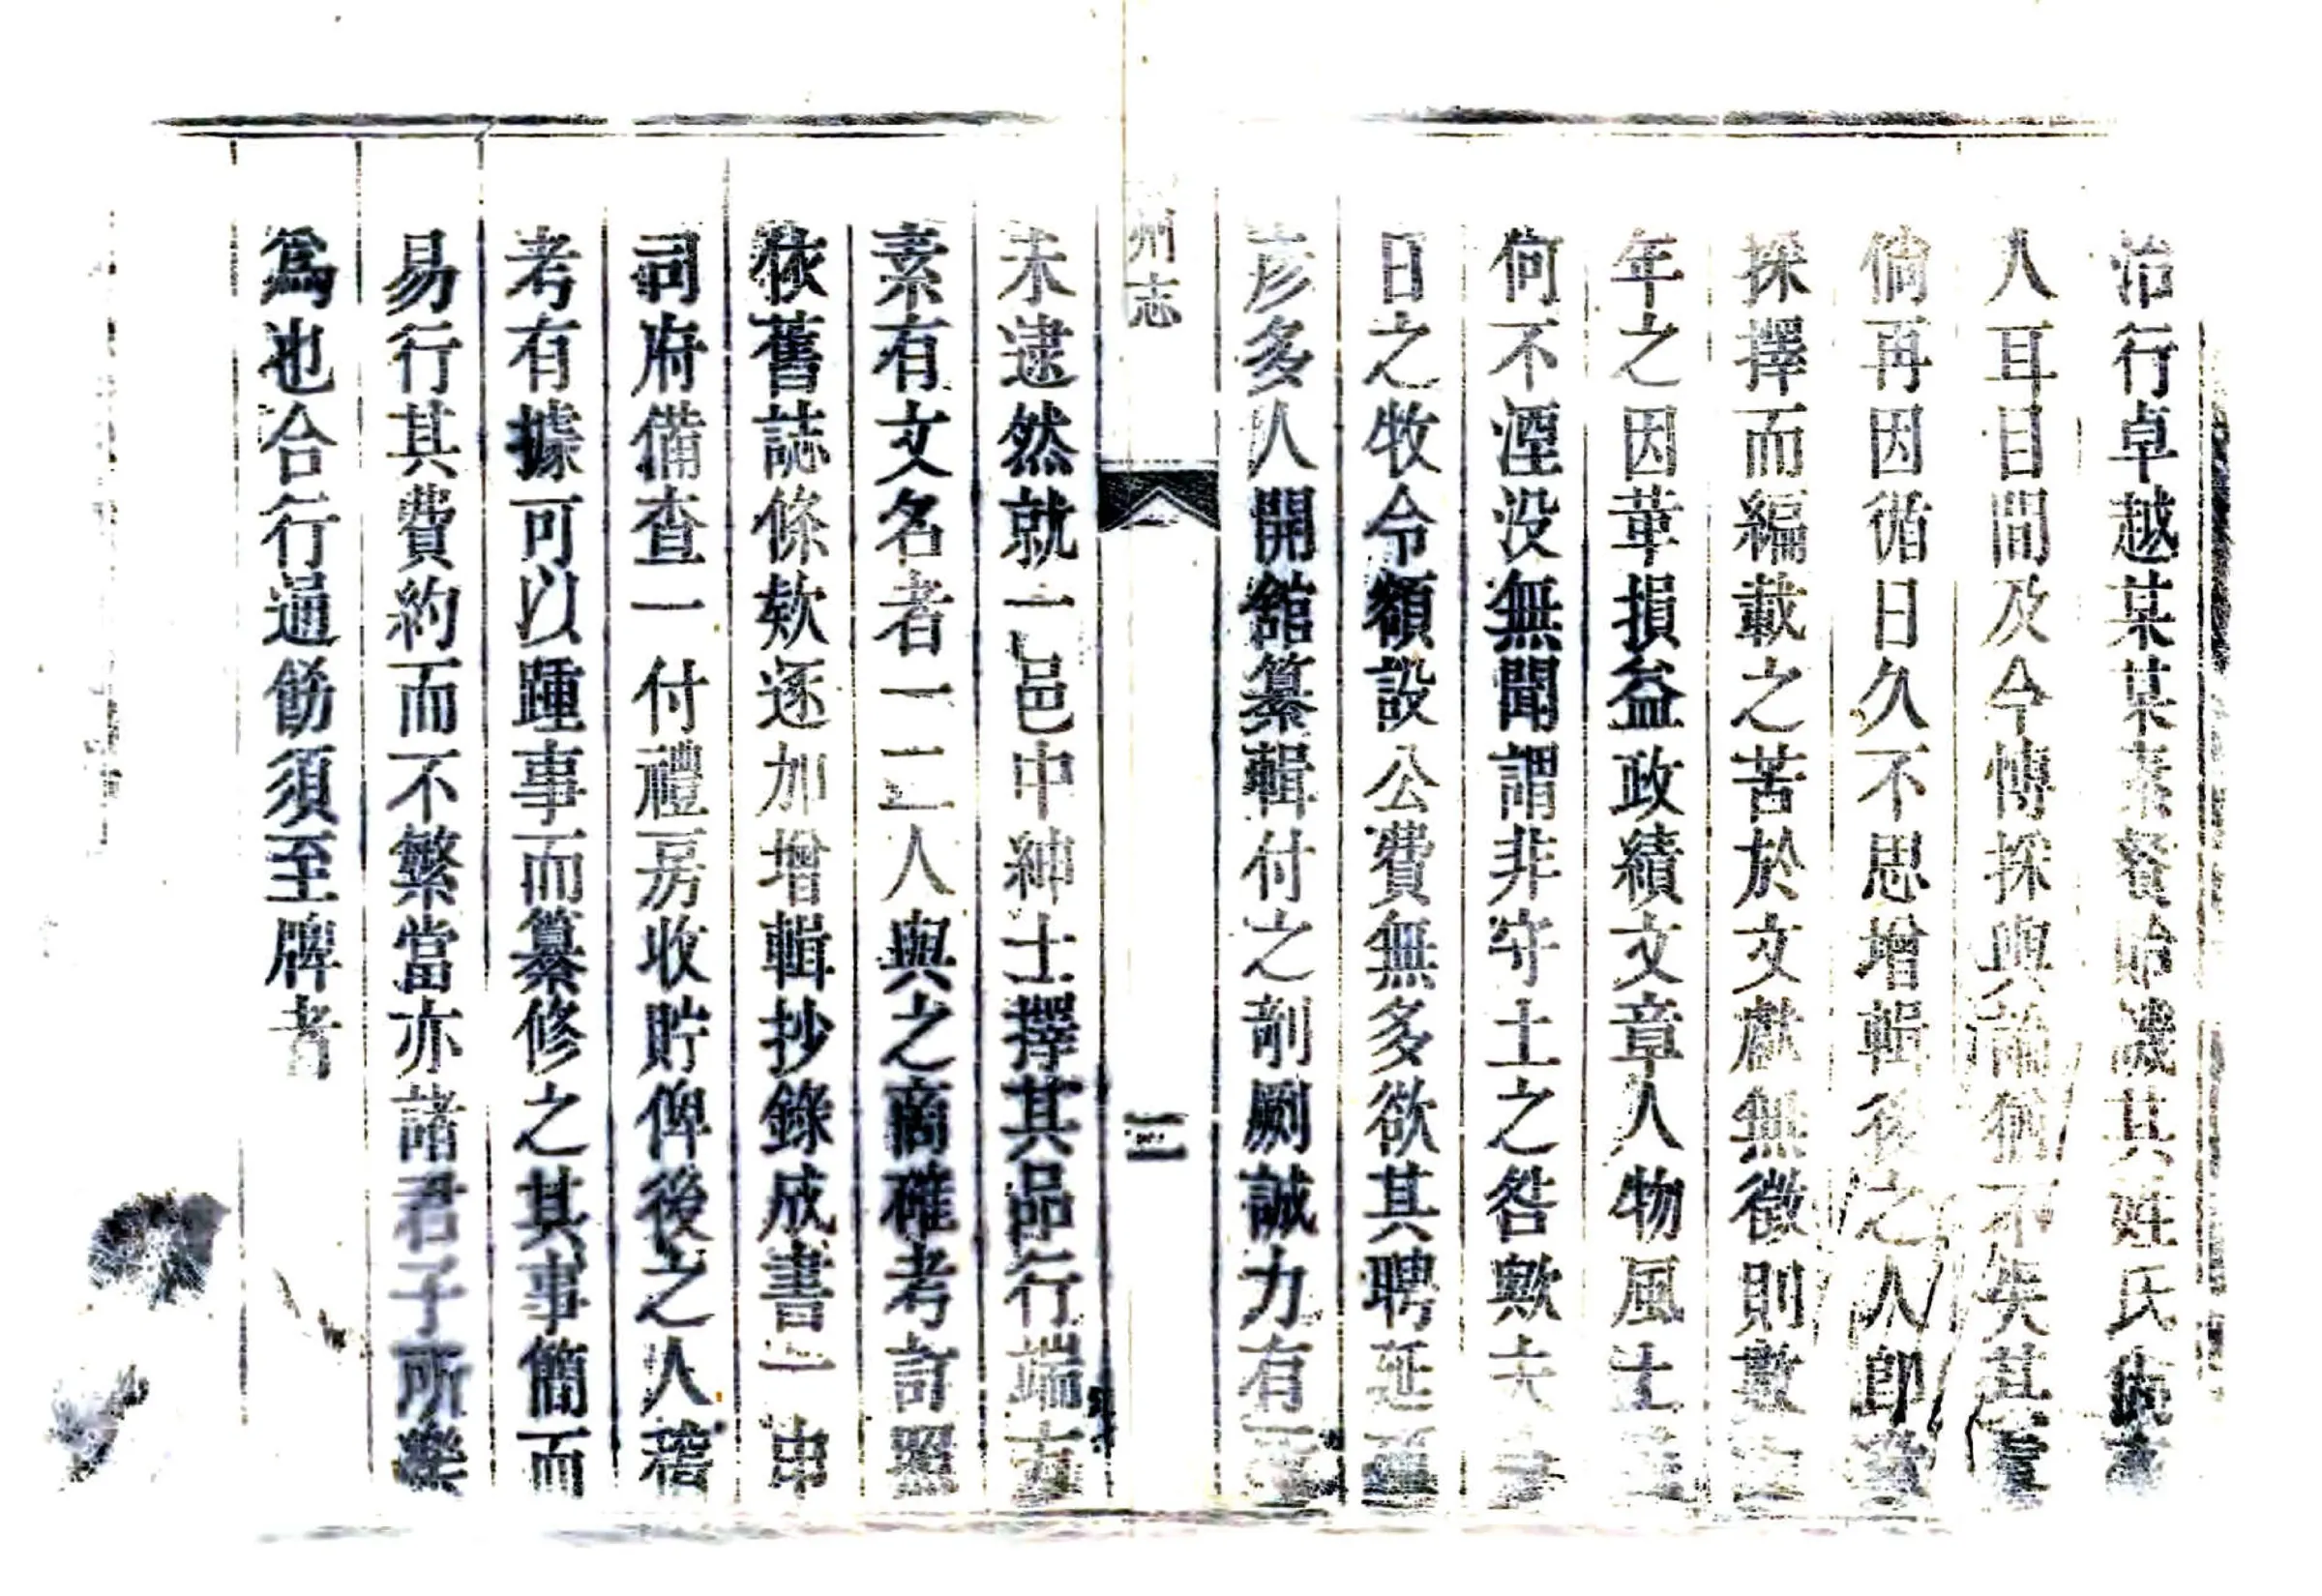 治行卓越某某素餐貽譏其姓氏
人耳目間及今博採輿論猶不失其
倘再因循日久不思增輯後之人即
採擇而編載之苦於文獻無徵則數
年之因革損益政績文章人物風土
何不湮没無聞謂非守土之咎歟夫
日之牧令額設公費無多欲其聘延
彥多人開舘纂輯付之剞劂誠力有
州志
三
未逮然就一邑中紳士擇其品行端方
素有文名者一二人與之商確考訂照
依舊誌條欵逐加增輯抄錄成書一申
司府備查一付禮房收貯俾後之人稽
考有據可以踵事而纂修之其事簡而
易行其費約而不繁當亦諸君子所樂
爲也合行通飭須至牌者